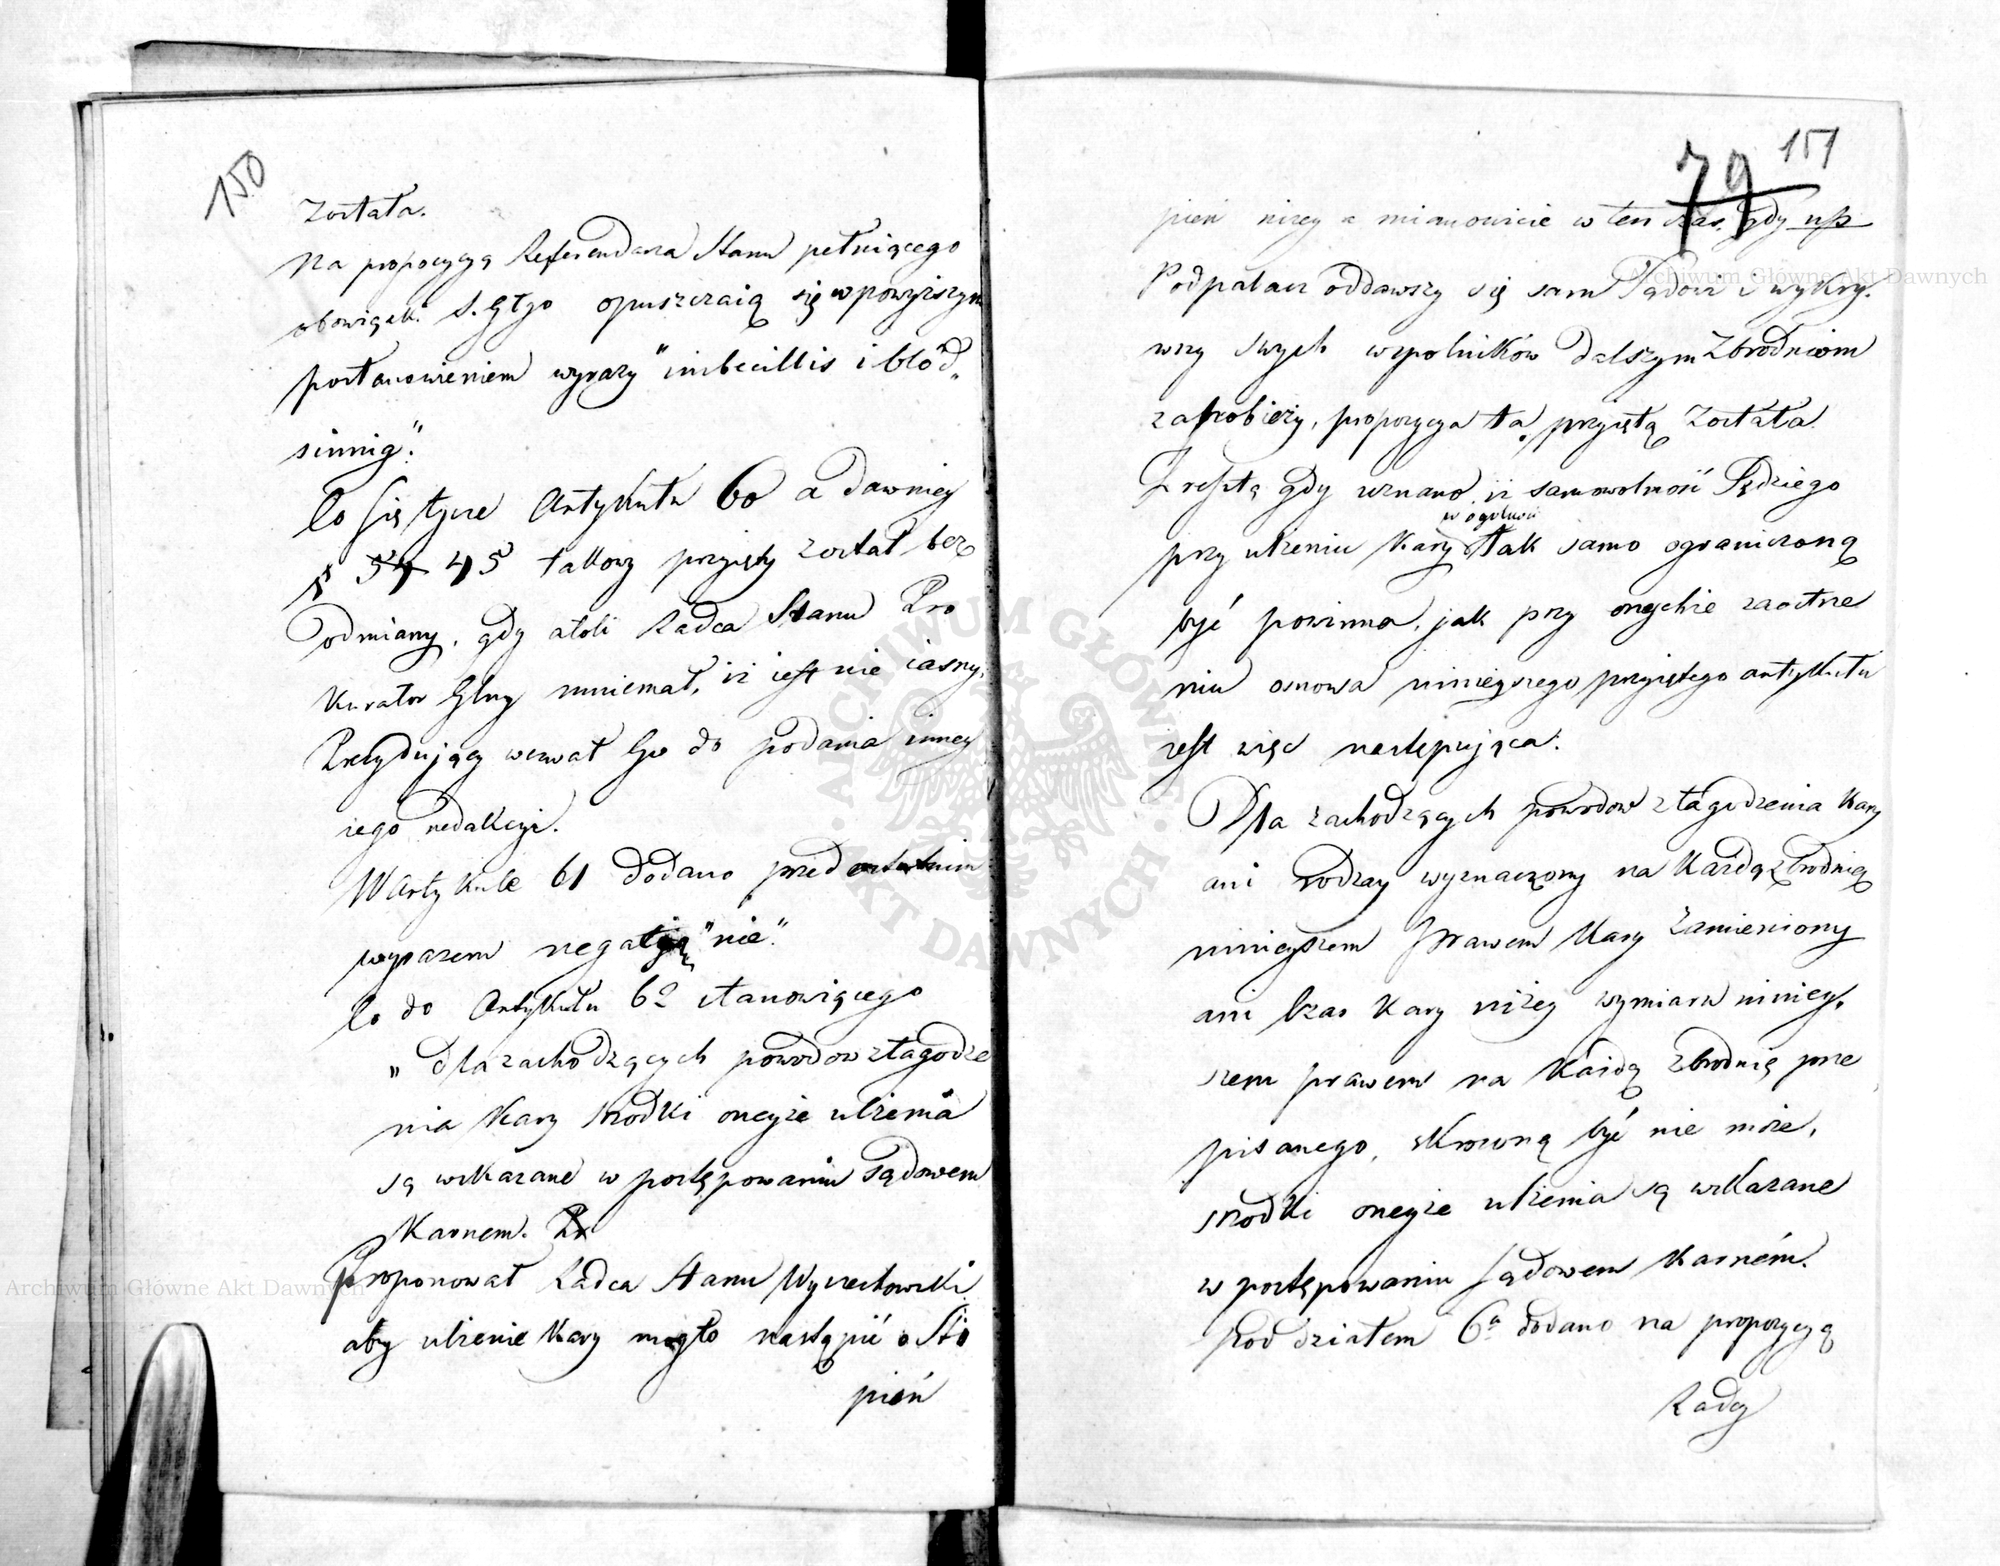 150
Została.
Na propozycyą Referendarza Stanu pełniącego
obowiązki S. Głgo opuszczaią się w powyższym
postanowieniem wyrazy "imbecillis i blöd„
sinnig".
Co się tycze Artykułu 60 a dawniey
§ 54 45 takowy przyięty został bez
odmiany, gdy atoli Radca Stanu Pro
kurator Glny mniemał, iż iest nie iasny,
Prezydujący wezwał Go do podania inney
iego redakcyi.
W Artykule 61 dodano przed ostatnim
wyrazem negatyią "nie".
Co do Artykułu 62 stanowiącego
„ dla zachodzących powodów złagodze
nia Kary środki oneyże ulżenia
są wskazane w postępowaniu Sądowem
Karnem. Pr
Proponował Radca Stanu Wyczechowski
aby ulżenie Kary mogło nastąpić o Sto
pień
79 151
pień niżey a mianowicie w ten czas, gdy np
Podpalacz oddawszy się sam Sądowi i wykry„
wszy swych wspólników dalszym Zbrodniom
zapobieży, propozycya ta przyiętą Została.
Zresztą gdy uznano iż samowolność Sędziego
w ogólności
przy ulżeniu Kary tak samo ograniczoną
być powinna, jak przy oneyże zaostrze
niu osnowa ninieyszego przyiętego artykułu
jest więc następująca:
Dla zachodzących powodów złagodzenia Kary
ani rodzay wyznaczony na Każdą zbrodnię
ninieyszem Prawem Kary Zamieniony
ani Czas Kary niżey wymiaru niniey„
szem prawem na Każdą zbrodnię prze
pisanego, skróconą być nie może,
środki oneyże ulżenia są wskazane
w postępowaniu Sądowem Karném.
Pod działem 6ym dodano na propozycyą
Radcy
Archiwum Główne Akt Dawnych
Archiwum Główne Akt Dawnych
ARCHIWUM GŁÓWNE · AKT DAWNYCH ·